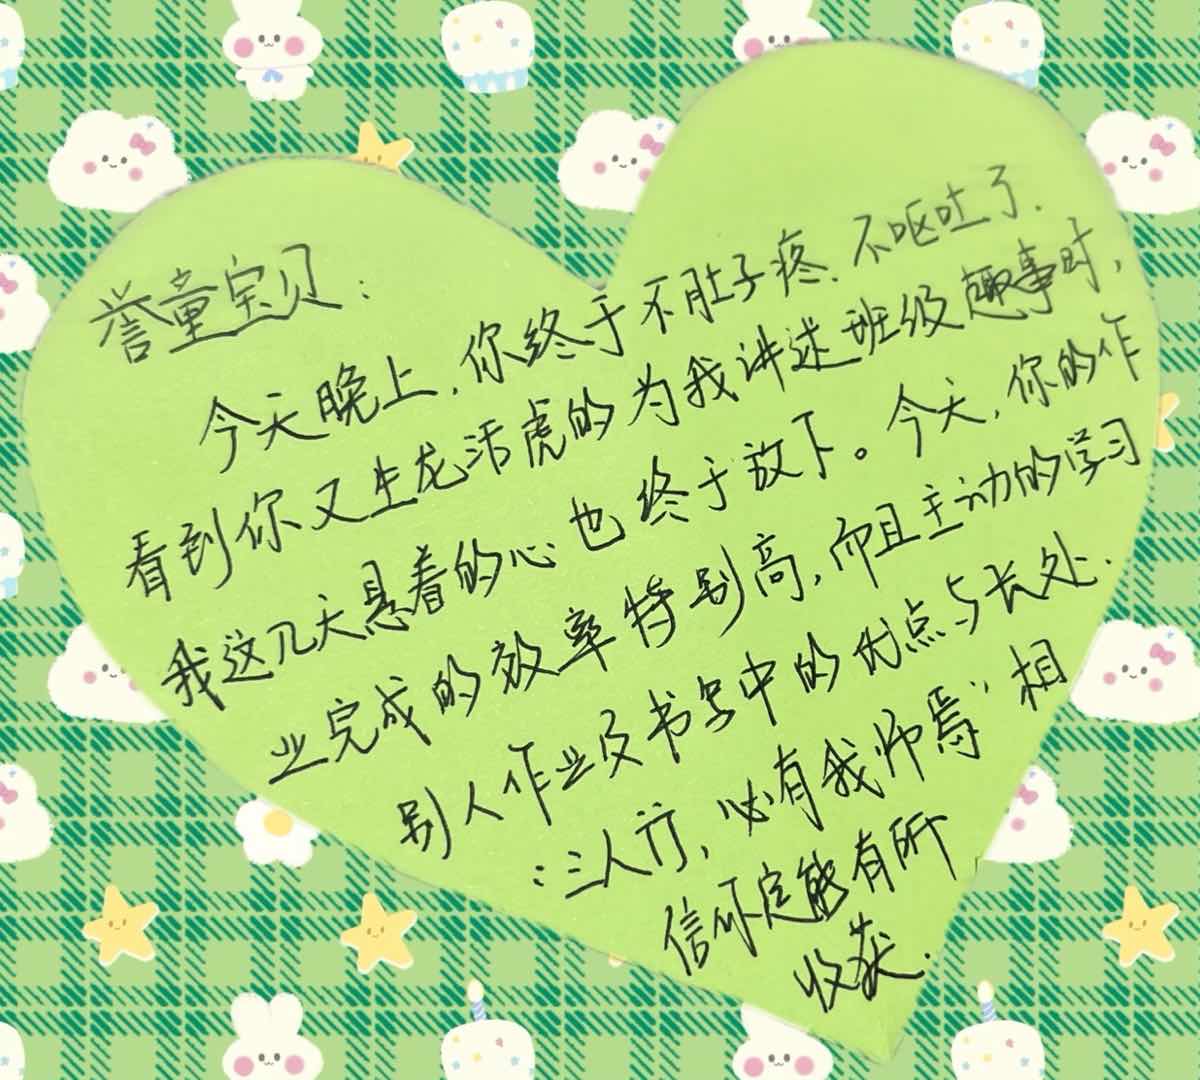 誉童宝贝：
今天晚上，你终于不肚子疼.不呕吐了.
看到你又生龙活虎的为我讲述班级趣事时，
我这几天悬着的心也终于放下。今天，你的作
业完成的效率特别高，而且主动的学习
别人作业及书写中的优点与长处.
“三人行，必有我师焉”相
信你定能有所
收获.